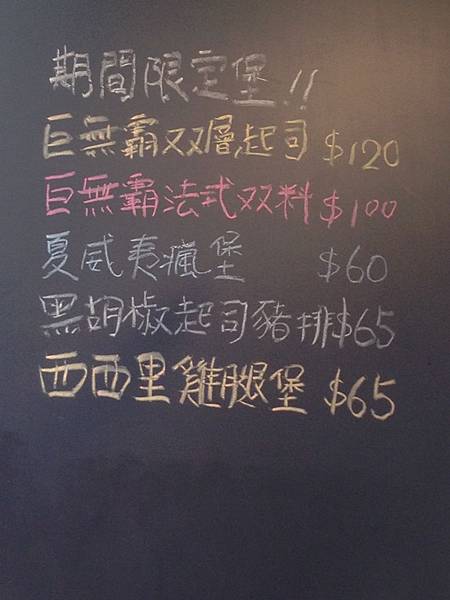 期間限定堡!!
巨無霸双層起司 $120
巨無霸法式双料 $100
夏威夷瘋堡 $60
黑胡椒起司豬排$65
西西里雞腿堡 $65